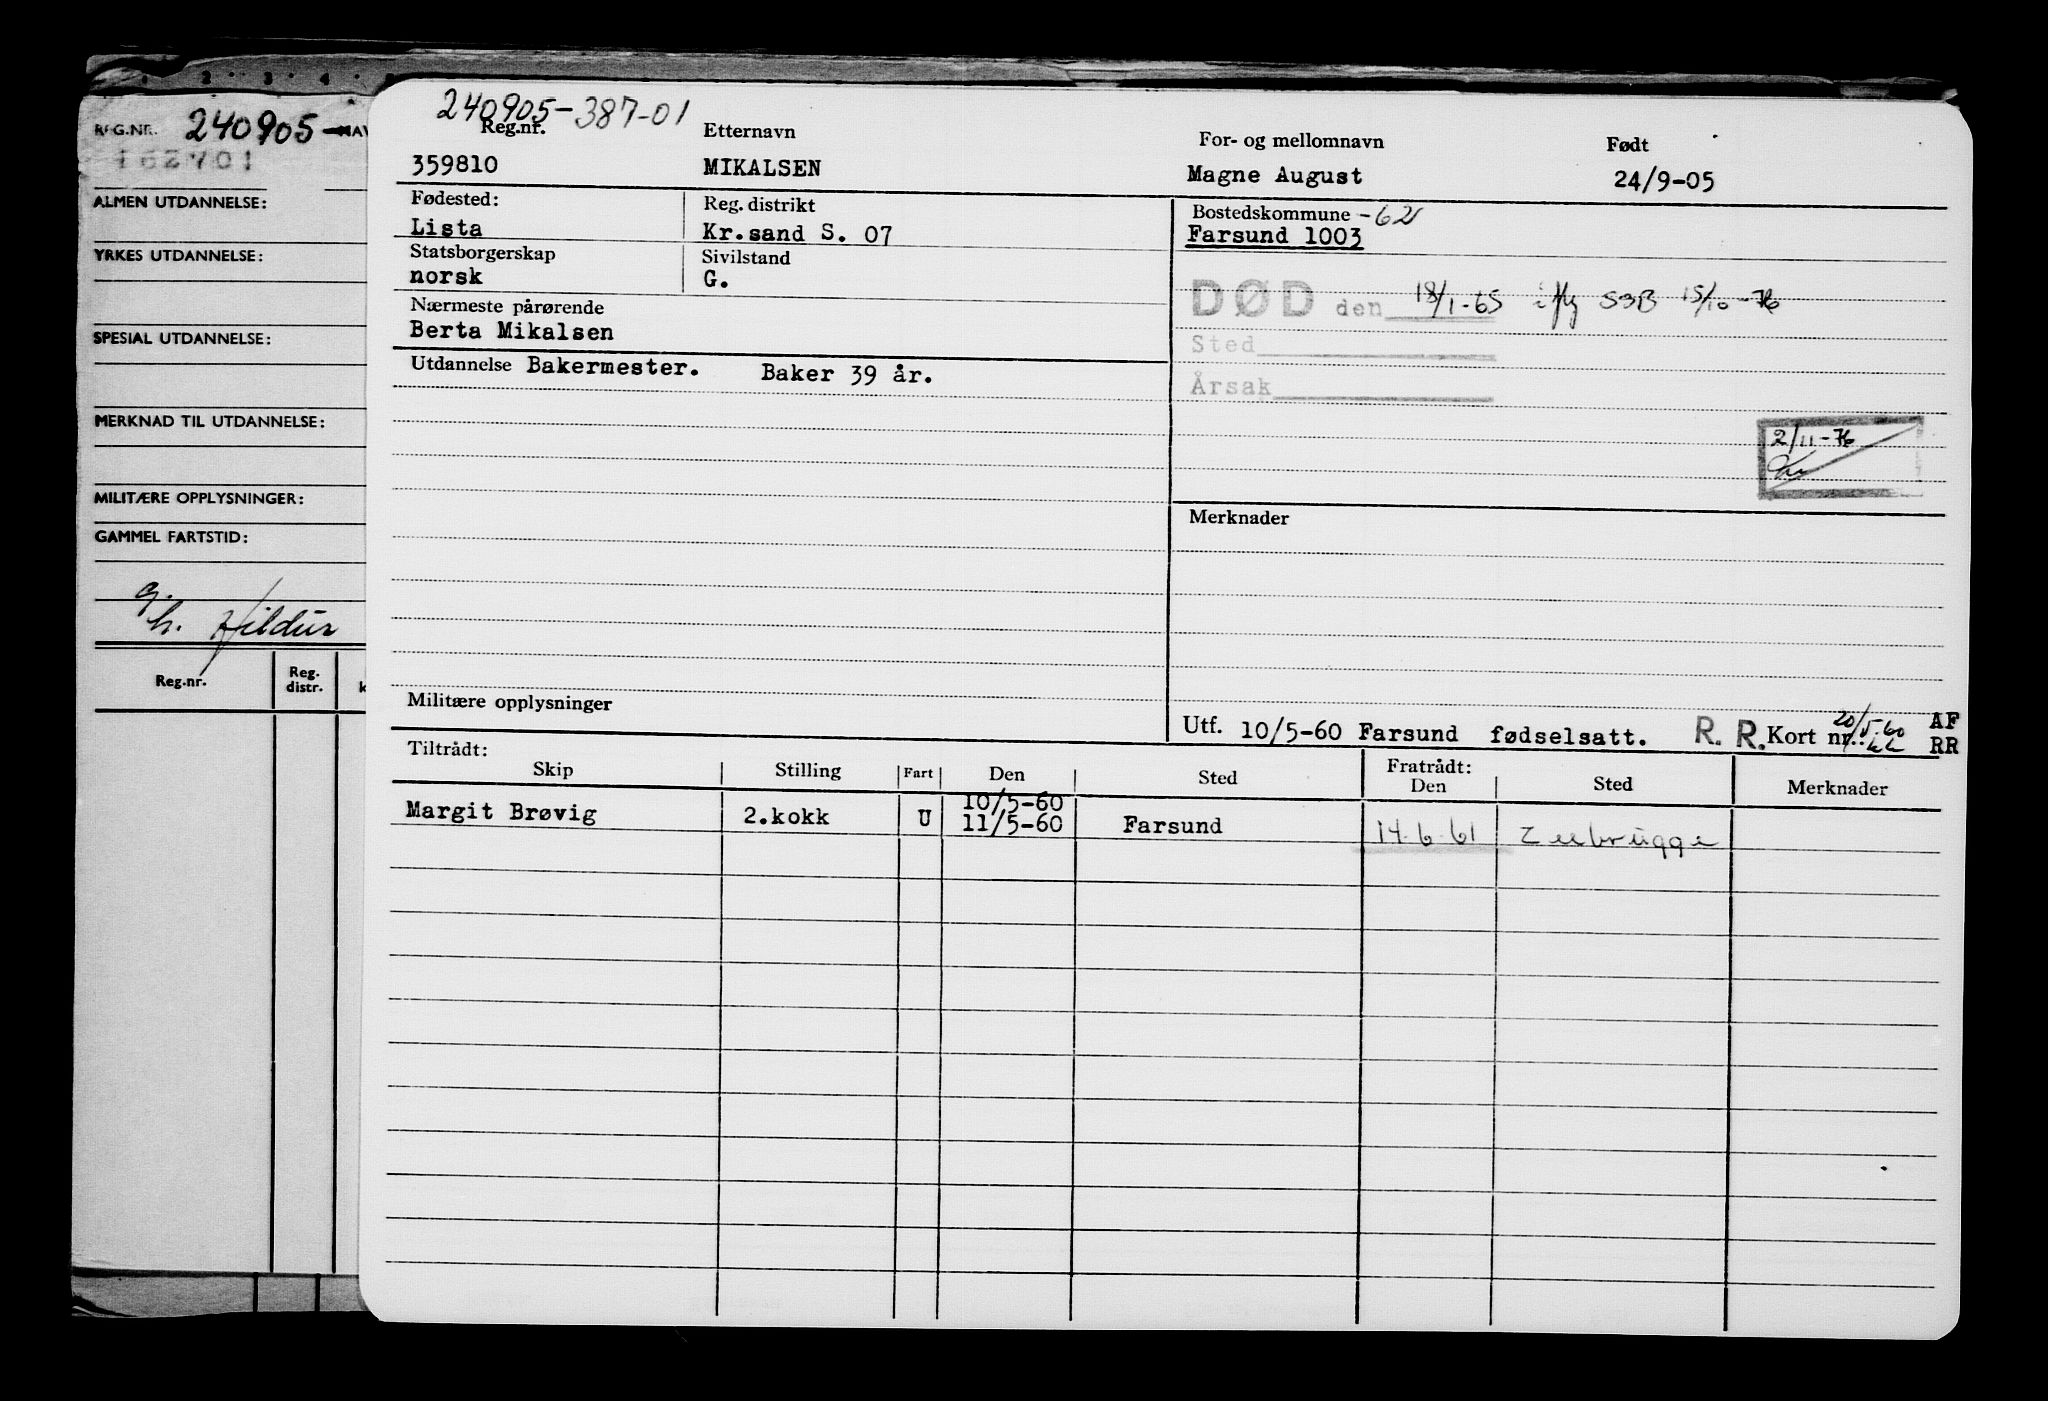 1 2 3 4
REG.NR. 240905- NAV
162701
ALMEN UTDANNELSE:
YRKES UTDANNELSE:
SPESIAL UTDANNELSE:
MERKNAD TIL UTDANNELSE:
MILITÆRE OPPLYSNINGER:
GAMMEL FARTSTID:
g.
h. Hildur
Reg.nr. Reg. distr. k
240905-387-01
Reg.nr. Etternavn For- og mellomnavn Født
359810 MIKALSEN Magne August 24/9-05
Fødested: Reg. distrikt Bostedskommune -62
Lista Kr.sand S. 07 Farsund 1003
Statsborgerskap Sivilstand
norsk G.
Nærmeste pårørende
Berta Mikalsen
DØD den 18/1-65 iflg SSB 15/10-76
Sted
Årsak
Utdannelse Bakermester. Baker 39 år.
2/11-76
Merknader
Militære opplysninger
Utf. 10/5-60 Farsund fødselsatt. R. R. Kort nr. 20/5-60 AF
RR
Tiltrådt: Fratrådt:
Skip Stilling Fart Den Sted Den Sted Merknader
10/5-60
Margit Brøvig 2.kokk U 11/5-60 Farsund 14-6-61 Zeebrügge